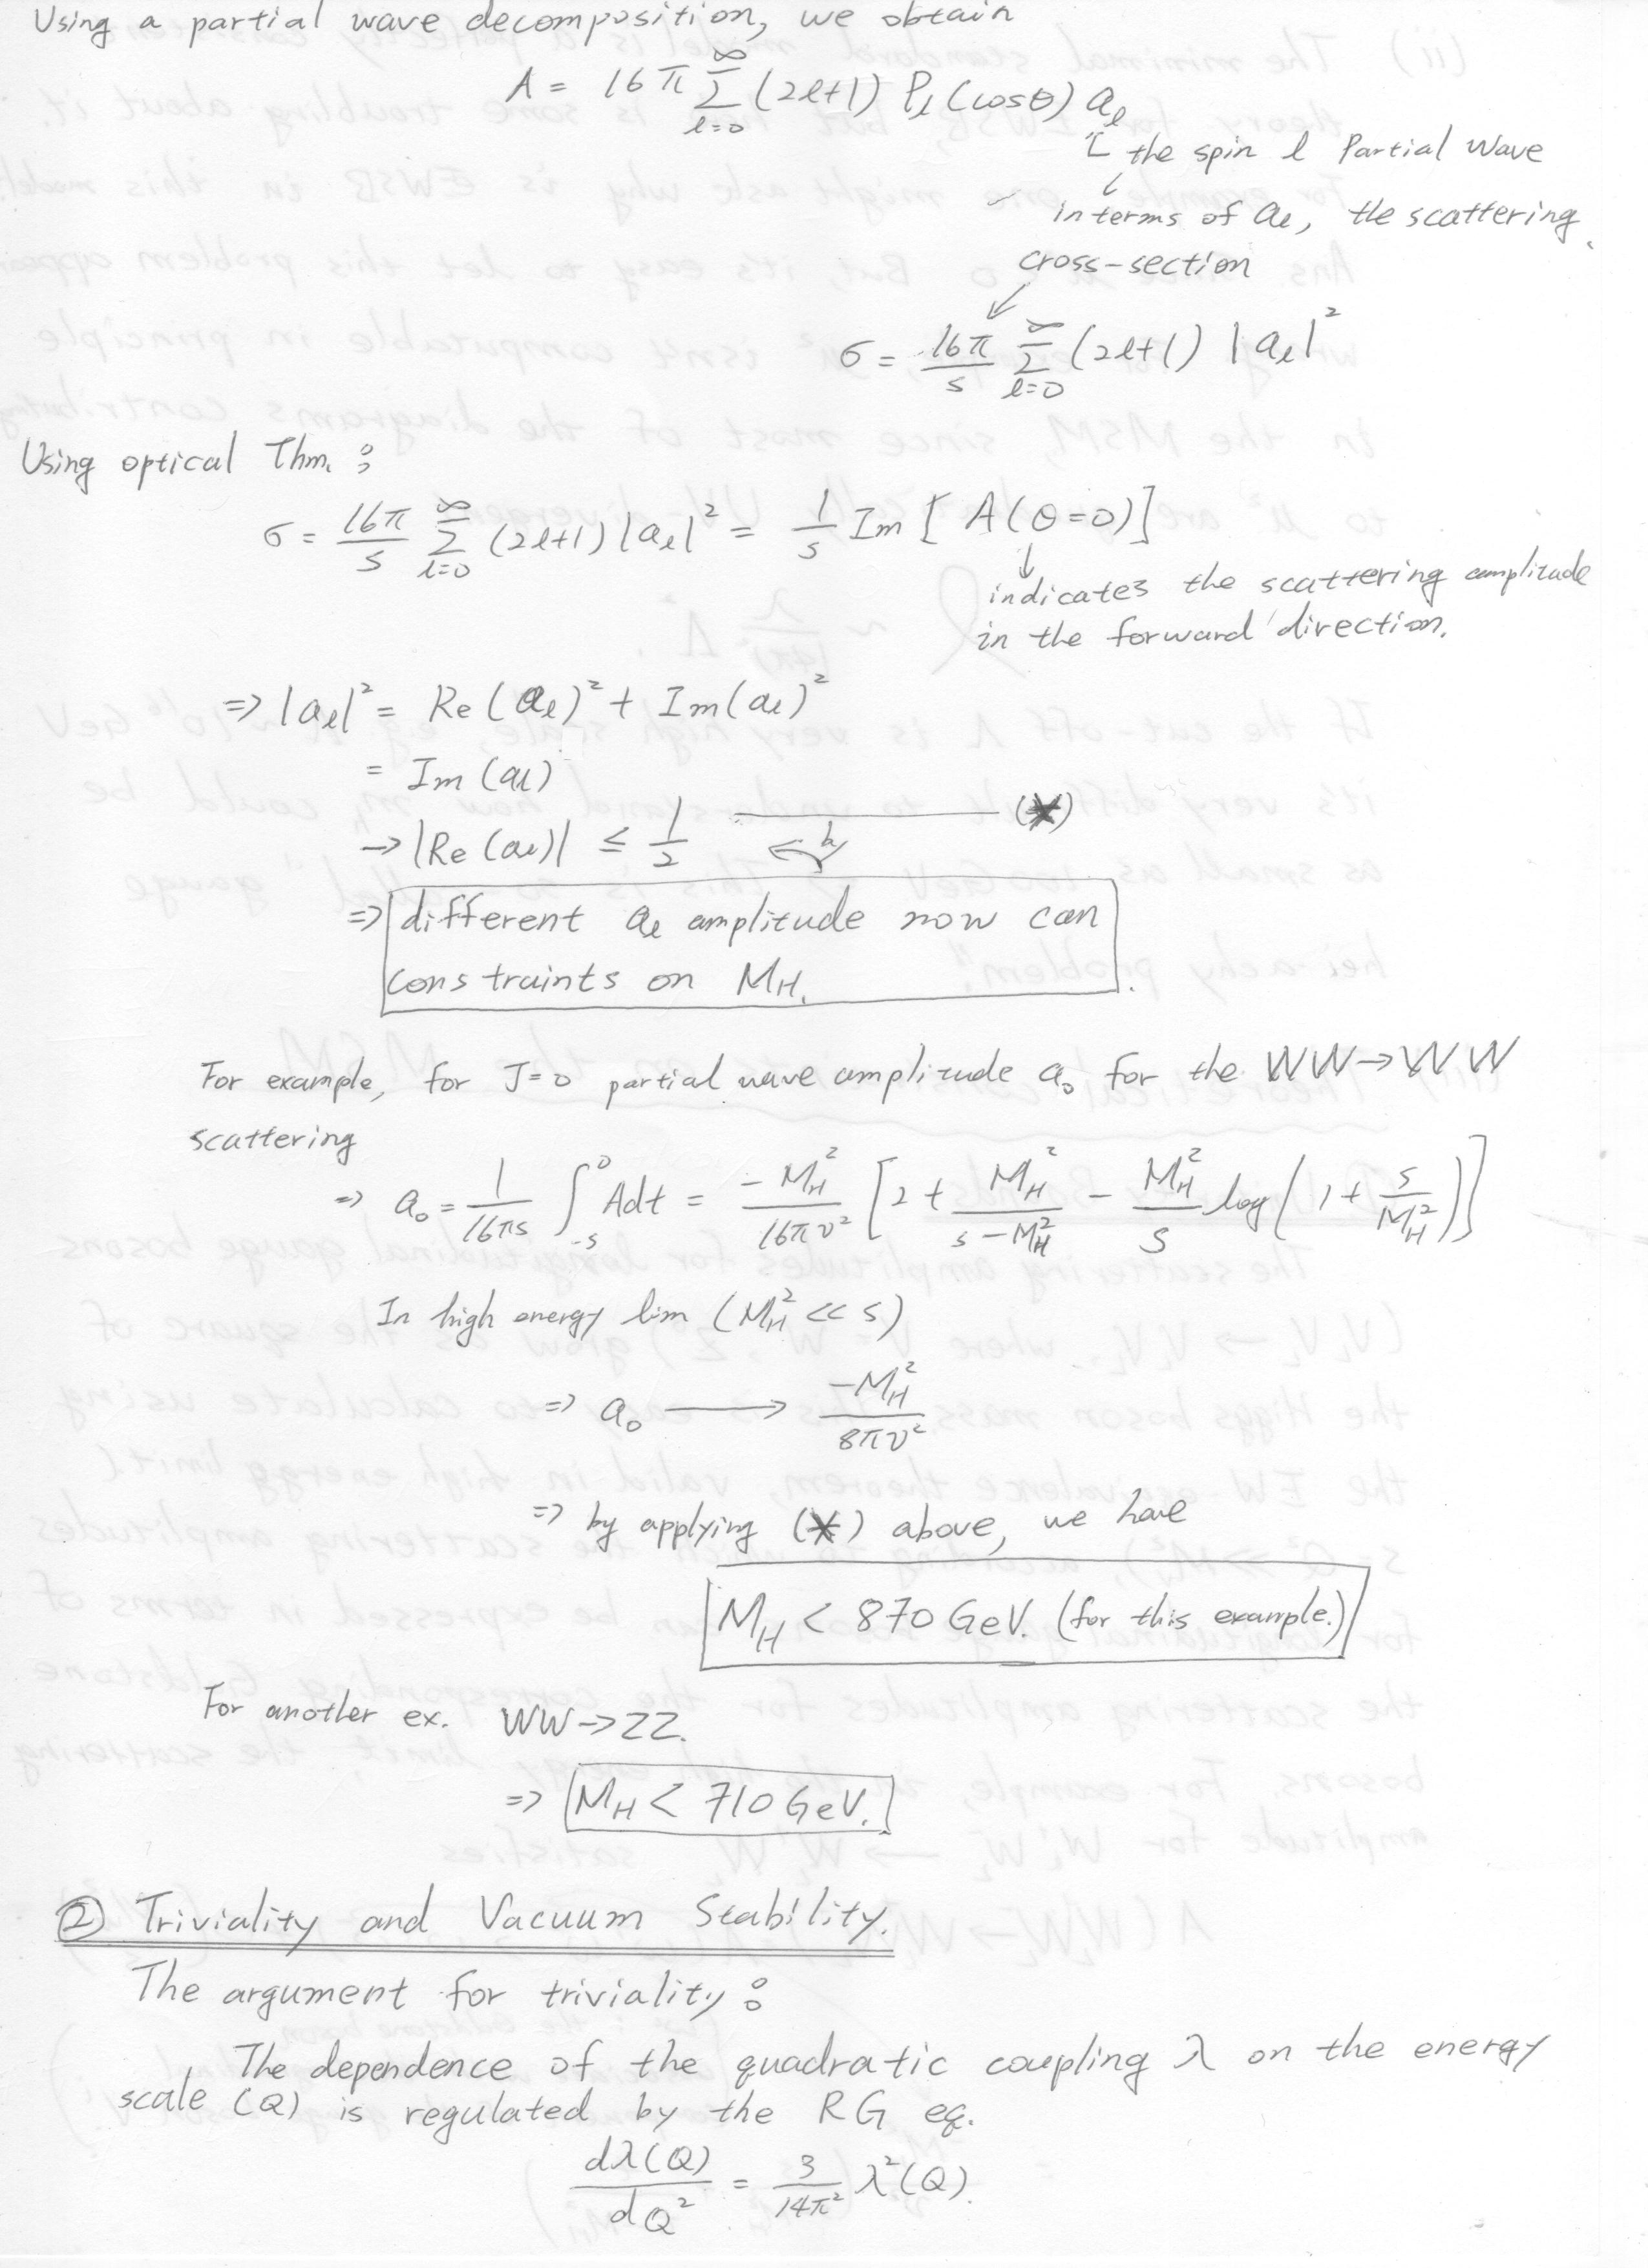 Using a partial wave decomposition, we obtain
A = 16π ∑_{l=0}^{∞} (2l+1) P_l (cosθ) a_l
the spin l Partial Wave
in terms of a_l, the scattering
cross-section
σ = 16π/s ∑_{l=0}^{∞} (2l+1) |a_l|²
Using optical Thm. :
σ = 16π/s ∑_{l=0}^{∞} (2l+1) |a_l|² = 1/s Im [ A(θ=0) ]
indicates the scattering amplitude
in the forward direction.
⇒ |a_l|² = Re(a_l)² + Im(a_l)²
= Im(a_l)
→ |Re(a_l)| ≤ 1/2 (*)
⇒ different a_l amplitude now can
constraints on M_H.
For example, for J=0 partial wave amplitude a_0 for the WW→WW
scattering
⇒ a_0 = 1/16πs ∫_{-s}^{0} A dt = -M_H²/16πv² [ 2 + M_H²/(s-M_H²) - M_H²/s log( 1 + s/M_H² ) ]
In high energy lim (M_H² << s)
⇒ a_0 → -M_H²/8πv²
⇒ by applying (*) above, we have
M_H < 870 GeV. (for this example.)
For another ex. WW→ZZ.
⇒ M_H < 710 GeV.
② Triviality and Vacuum Stability.
The argument for triviality :
The dependence of the quadratic coupling λ on the energy
scale (Q) is regulated by the RG eq.
dλ(Q)/dQ² = 3/14π² λ²(Q).